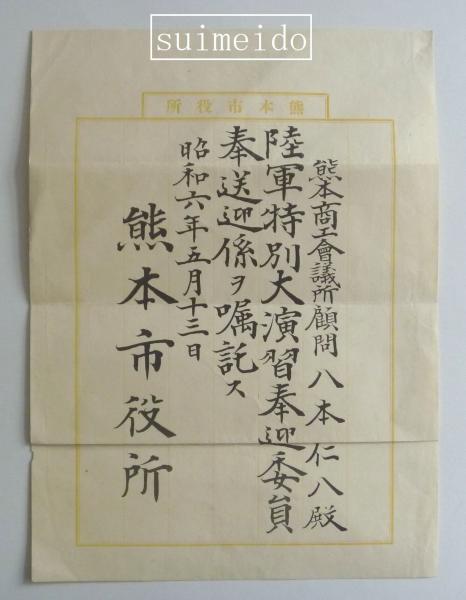 suimeido
熊本市役所
熊本商工會議所顧問 八木仁八殿
陸軍特別大演習奉迎委員
奉送迎係ヲ嘱託ス
昭和六年五月十三日
熊本市役所